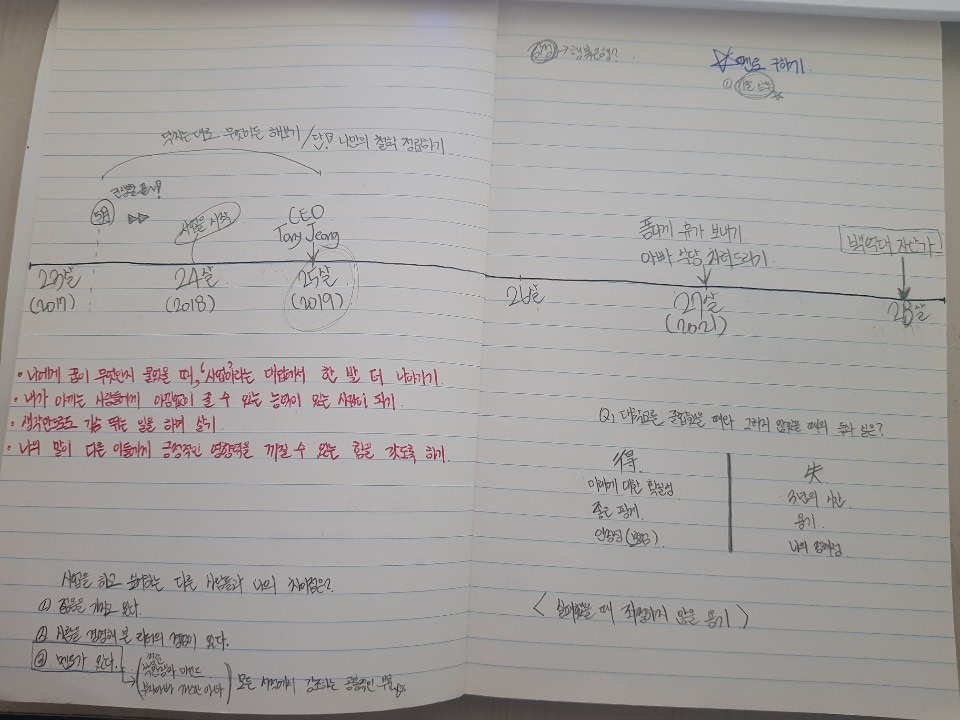 닥치는 대로 무엇이든 해보기 / 단, 나만의 철학 정립하기
군생활 끝!
5月
사업을 시작
CEO
Tony Jeong
23살
(2017)
24살
(2018)
25살
(2019)
• 나에게 꿈이 무엇인지 물었을 때, '사업'이라는 대답에서 한 발 더 나아가기
• 내가 아끼는 사람들에게 아낌없이 줄 수 있는 능력이 있는 사람이 되기
• 생각만으로도 가슴 뛰는 일을 하며 살기
• 나의 말이 다른 이들에게 긍정적인 영향력을 끼칠 수 있는 힘을 갖도록 하기.
사업을 하고 싶어하는 다른 사람들과 나의 차이점은?
① 젊음을 가지고 있다.
② 사람을 경영해 본 리더의 경험이 있다.
③ 멘토가 있다.
백만장자 마인드
부자아빠 가난한 아빠
모든 서적에서 강조하는 공통적인 부분
멘토 구하기.
①
품다끼 휴가 보내기
아빠 식당 차려드리기
백억대 자산가
26살
27살
(2021)
28살
Q. 대학교를 졸업했을 때와 그러지 않았을 때의 득과 실은?
得
미래에 대한 확실성
좋은 핑계
안정성
失
3년의 시간
용기
나의
< 실패했을 때 좌절하지 않을 용기 >